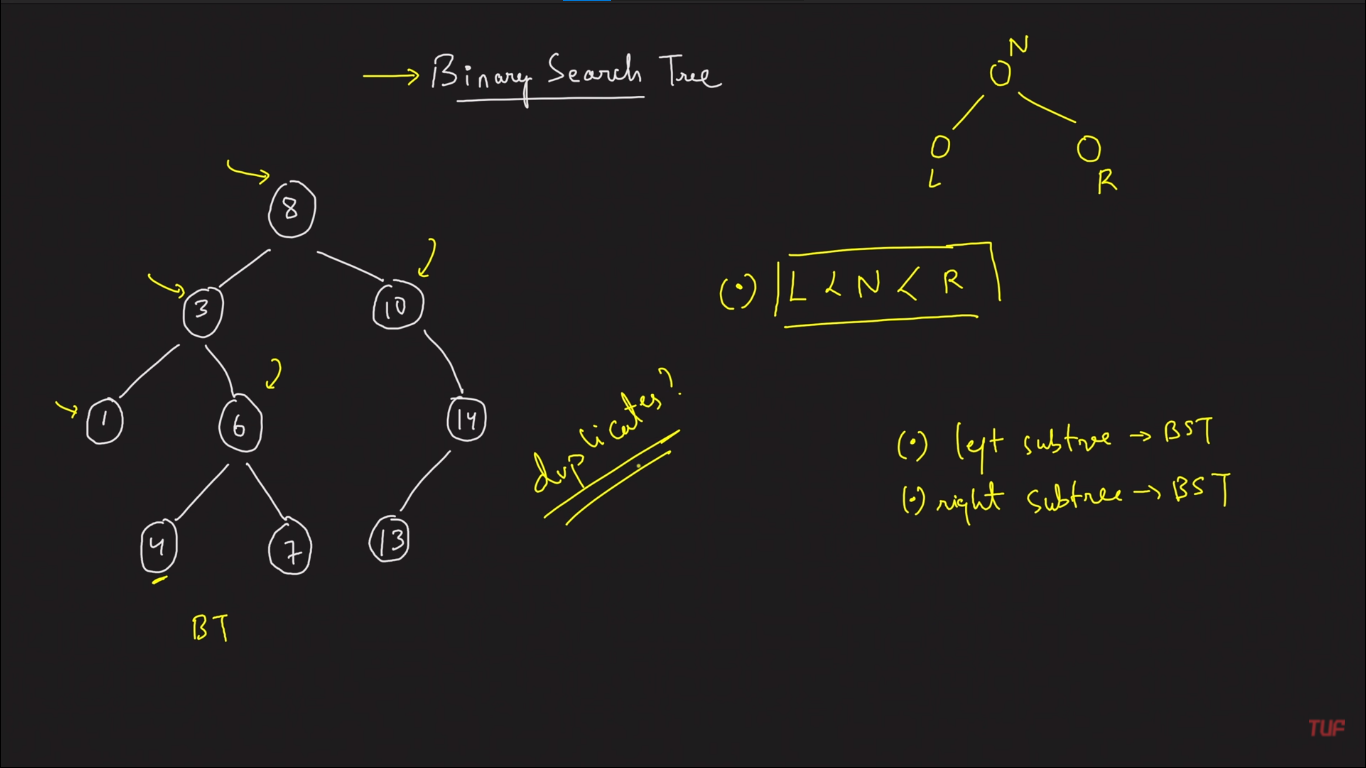 → Binary Search Tree
N
L
R
8
3
10
1
6
14
4
7
13
BT
(•) L < N < R
duplicates?
(•) left subtree → BST
(•) right subtree → BST
TUF